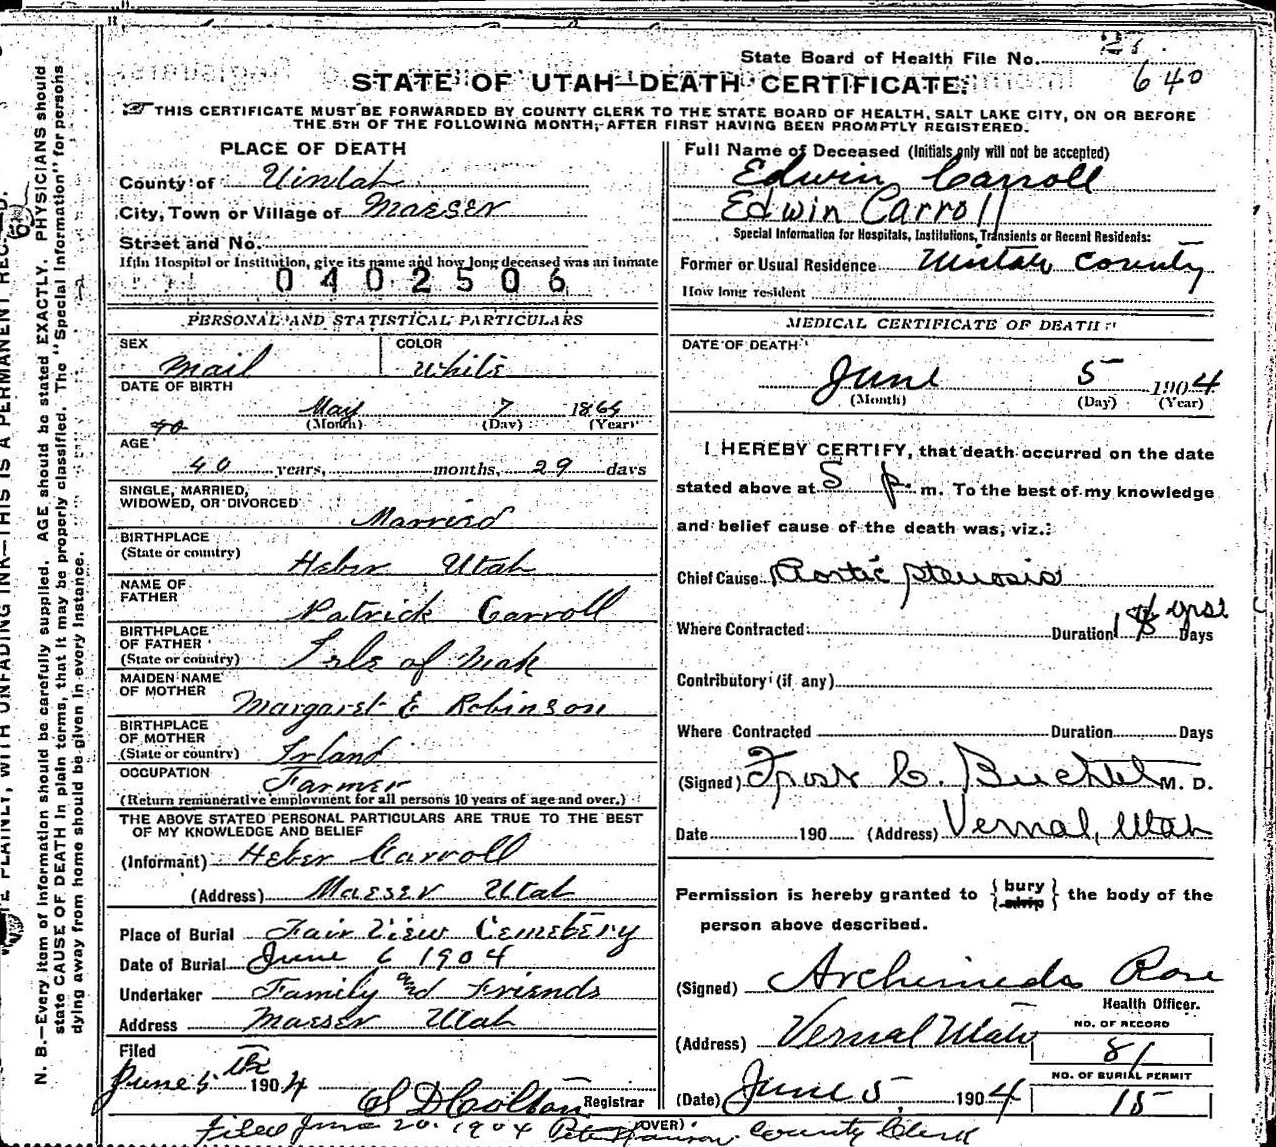 State Board of Health File No.
640
STATE OF UTAH—DEATH CERTIFICATE.
THIS CERTIFICATE MUST BE FORWARDED BY COUNTY CLERK TO THE STATE BOARD OF HEALTH, SALT LAKE CITY, ON OR BEFORE
THE 5TH OF THE FOLLOWING MONTH, AFTER FIRST HAVING BEEN PROMPTLY REGISTERED.
PLACE OF DEATH
County of Uintah
City, Town or Village of Maeser
Street and No.
If in Hospital or Institution, give its name and how long deceased was an inmate
0402506
PERSONAL AND STATISTICAL PARTICULARS
SEX Mail COLOR White
DATE OF BIRTH
May 7 1864
(Month) (Day) (Year)
40
AGE
40 years, months, 29 days
SINGLE, MARRIED,
WIDOWED, OR DIVORCED
Married
BIRTHPLACE
(State or country) Heber Utah
NAME OF
FATHER Patrick Carroll
BIRTHPLACE
OF FATHER
(State or country) Isle of Man
MAIDEN NAME
OF MOTHER Margaret E Robinson
BIRTHPLACE
OF MOTHER
(State or country) Irland
OCCUPATION Farmer
(Return remunerative employment for all persons 10 years of age and over.)
THE ABOVE STATED PERSONAL PARTICULARS ARE TRUE TO THE BEST
OF MY KNOWLEDGE AND BELIEF
(Informant) Heber Carroll
(Address) Maeser Utah
Place of Burial Fair View Cemetery
Date of Burial June 6 1904
Undertaker Family and Friends
Address Maeser Utah
Filed
June 5th 1904 S D Colton Registrar
Full Name of Deceased (Initials only will not be accepted)
Edwin Carroll
Edwin Carroll
Special Information for Hospitals, Institutions, Transients or Recent Residents:
Former or Usual Residence Uintah County
How long resident
MEDICAL CERTIFICATE OF DEATH
DATE OF DEATH
June 5 1904
(Month) (Day) (Year)
I HEREBY CERTIFY, that death occurred on the date
stated above at 5 p. m. To the best of my knowledge
and belief cause of the death was, viz.:
Chief Cause: Aortic stenosis
Where Contracted Duration yrs. Days
Contributory (if any)
Where Contracted Duration Days
(Signed) Frost C. Buchtel M. D.
Date 190 (Address) Vernal, Utah
Permission is hereby granted to { bury ship } the body of the
person above described.
(Signed) Archimeda Rose
Health Officer.
(Address) Vernal Utah
NO. OF RECORD
81
NO. OF BURIAL PERMIT
15
(Date) June 5, 1904
(OVER)
Filed June 20, 1904 Peter Hanson County Clerk
N. B.—Every item of information should be carefully supplied. AGE should be stated EXACTLY. PHYSICIANS should
state CAUSE OF DEATH in plain terms, that it may be properly classified. The "Special Information" for persons
dying away from home should be given in every instance.
PLAINLY, WITH UNFADING INK—THIS IS A PERMANENT